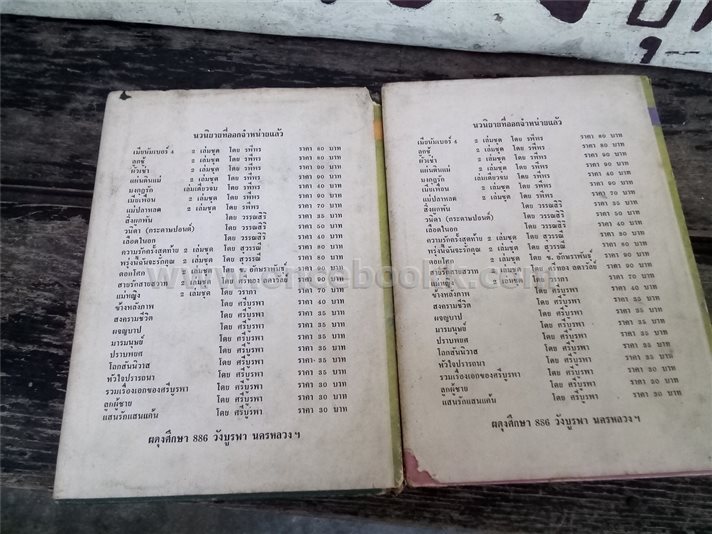 นวนิยายที่ออกจำหน่ายแล้ว
เมียนัมเบอร์ 4 2 เล่มชุด โดย รพีพร ราคา 80 บาท
ลูกชู้ 2 เล่มชุด โดย รพีพร ราคา 80 บาท
ผัวเช่า 2 เล่มชุด โดย รพีพร ราคา 90 บาท
แผ่นดินแม่ 2 เล่มชุด โดย รพีพร ราคา 90 บาท
มงกุฎรัก เล่มเดียวจบ โดย รพีพร ราคา 40 บาท
เมียเพื่อน 2 เล่มชุด โดย รพีพร ราคา 90 บาท
แม่ปลาหมอ 2 เล่มชุด โดย รพีพร ราคา 70 บาท
สิ่งผูกพัน โดย วรรณสิริ ราคา 35 บาท
วนิดา (กระดาษปอนด์) โดย วรรณสิริ ราคา 50 บาท
เลือดในอก โดย วรรณสิริ ราคา 40 บาท
ความรักครั้งสุดท้าย 2 เล่มชุด โดย สุวรรณี ราคา 80 บาท
พรุ่งนี้ฉันจะรักคุณ 2 เล่มชุด โดย สุวรรณี ราคา 80 บาท
ดอกโศก 2 เล่มชุด โดย ช. อักษราพันธุ์ ราคา 80 บาท
สายรักสายสวาท 2 เล่มชุด โดย ศรีทอง ลดาวัลย์ ราคา 90 บาท
แม่หญิง 2 เล่มชุด โดย วราภา ราคา 70 บาท
ข้างหลังภาพ โดย ศรีบูรพา ราคา 40 บาท
สงครามชีวิต โดย ศรีบูรพา ราคา 35 บาท
ผจญบาป โดย ศรีบูรพา ราคา 35 บาท
มารมนุษย์ โดย ศรีบูรพา ราคา 35 บาท
ปราบพยศ โดย ศรีบูรพา ราคา 35 บาท
โลกสันนิวาส โดย ศรีบูรพา ราคา 35 บาท
หัวใจปรารถนา โดย ศรีบูรพา ราคา 35 บาท
รวมเรื่องเอกของศรีบูรพา โดย ศรีบูรพา ราคา 30 บาท
ลูกผู้ชาย โดย ศรีบูรพา ราคา 30 บาท
แสนรักแสนแค้น โดย ศรีบูรพา ราคา 30 บาท
ผดุงศึกษา 886 วังบูรพา นครหลวง ฯ
นวนิยายที่ออกจำหน่ายแล้ว
เมียนัมเบอร์ 4 2 เล่มชุด โดย รพีพร ราคา 80 บาท
ลูกชู้ 2 เล่มชุด โดย รพีพร ราคา 80 บาท
ผัวเช่า 2 เล่มชุด โดย รพีพร ราคา 90 บาท
แผ่นดินแม่ 2 เล่มชุด โดย รพีพร ราคา 90 บาท
มงกุฎรัก เล่มเดียวจบ โดย รพีพร ราคา 40 บาท
เมียเพื่อน 2 เล่มชุด โดย รพีพร ราคา 90 บาท
แม่ปลาหมอ 2 เล่มชุด โดย รพีพร ราคา 70 บาท
สิ่งผูกพัน โดย วรรณสิริ ราคา 35 บาท
วนิดา (กระดาษปอนด์) โดย วรรณสิริ ราคา 50 บาท
เลือดในอก โดย วรรณสิริ ราคา 40 บาท
ความรักครั้งสุดท้าย 2 เล่มชุด โดย สุวรรณี ราคา 80 บาท
พรุ่งนี้ฉันจะรักคุณ 2 เล่มชุด โดย สุวรรณี ราคา 80 บาท
ดอกโศก 2 เล่มชุด โดย ช. อักษราพันธุ์ ราคา 80 บาท
สายรักสายสวาท 2 เล่มชุด โดย ศรีทอง ลดาวัลย์ ราคา 90 บาท
แม่หญิง 2 เล่มชุด โดย วราภา ราคา 70 บาท
ข้างหลังภาพ โดย ศรีบูรพา ราคา 40 บาท
สงครามชีวิต โดย ศรีบูรพา ราคา 35 บาท
ผจญบาป โดย ศรีบูรพา ราคา 35 บาท
มารมนุษย์ โดย ศรีบูรพา ราคา 35 บาท
ปราบพยศ โดย ศรีบูรพา ราคา 35 บาท
โลกสันนิวาส โดย ศรีบูรพา ราคา 35 บาท
หัวใจปรารถนา โดย ศรีบูรพา ราคา 35 บาท
รวมเรื่องเอกของศรีบูรพา โดย ศรีบูรพา ราคา 30 บาท
ลูกผู้ชาย โดย ศรีบูรพา ราคา 30 บาท
แสนรักแสนแค้น โดย ศรีบูรพา ราคา 30 บาท
ผดุงศึกษา 886 วังบูรพา นครหลวง ฯ